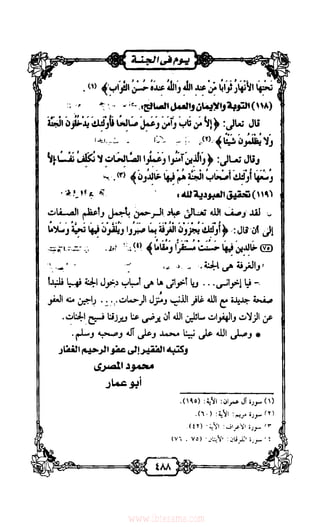 يوم في الجنة
تحتها الأنهار ثوابا من عند الله والله عنده حسن الثواب﴾ (١).
(١١٨) التوبة والإيمان والعمل الصالح:
قال تعالى: ﴿إلا من تاب وآمن وعمل صالحا فأولئك يدخلون الجنة
ولا يظلمون شيئا﴾ (٢).
وقال تعالى: ﴿والذين آمنوا وعملوا الصالحات لا نكلف نفسا إلا
وسعها أولئك أصحاب الجنة هم فيها خالدون﴾ (٣).
(١١٩) تحقيق العبودية لله:
لقد وصف الله تعالى عباد الرحمن بأجمل وأعظم الصفات
إلى أن قال: ﴿أولئك يجزون الغرفة بما صبروا ويلقون فيها تحية وسلاما
(٧٥) خالدين فيها حسنت مستقرا ومقاما﴾ (٤).
والغرفة هي الجنة.
- فيا إخواني... ويا أخواتي ها هي أسباب دخول الجنة فهيا فلنبدأ
صفحة جديدة مع الله غافر الذنب ومنزل الرحمات... راجين منه العفو
عن الزلات والهفوات سائلين الله أن يرضى عنا ويرزقنا فسيح الجنات.
* وصلى الله على نبينا محمد وعلى آله وصحبه وسلم.
وكتبه الفقير إلى عفو الرحيم الغفار
محمود المصرى
أبو عمار
(١) سورة آل عمران: الآية: (١٩٥).
(٢) سورة مريم: الآية: (٦٠).
(٣) سورة الأعراف: الآية: (٤٢).
(٤) سورة الفرقان: الآيتان: (٧٥ ، ٧٦).
٤٨٨